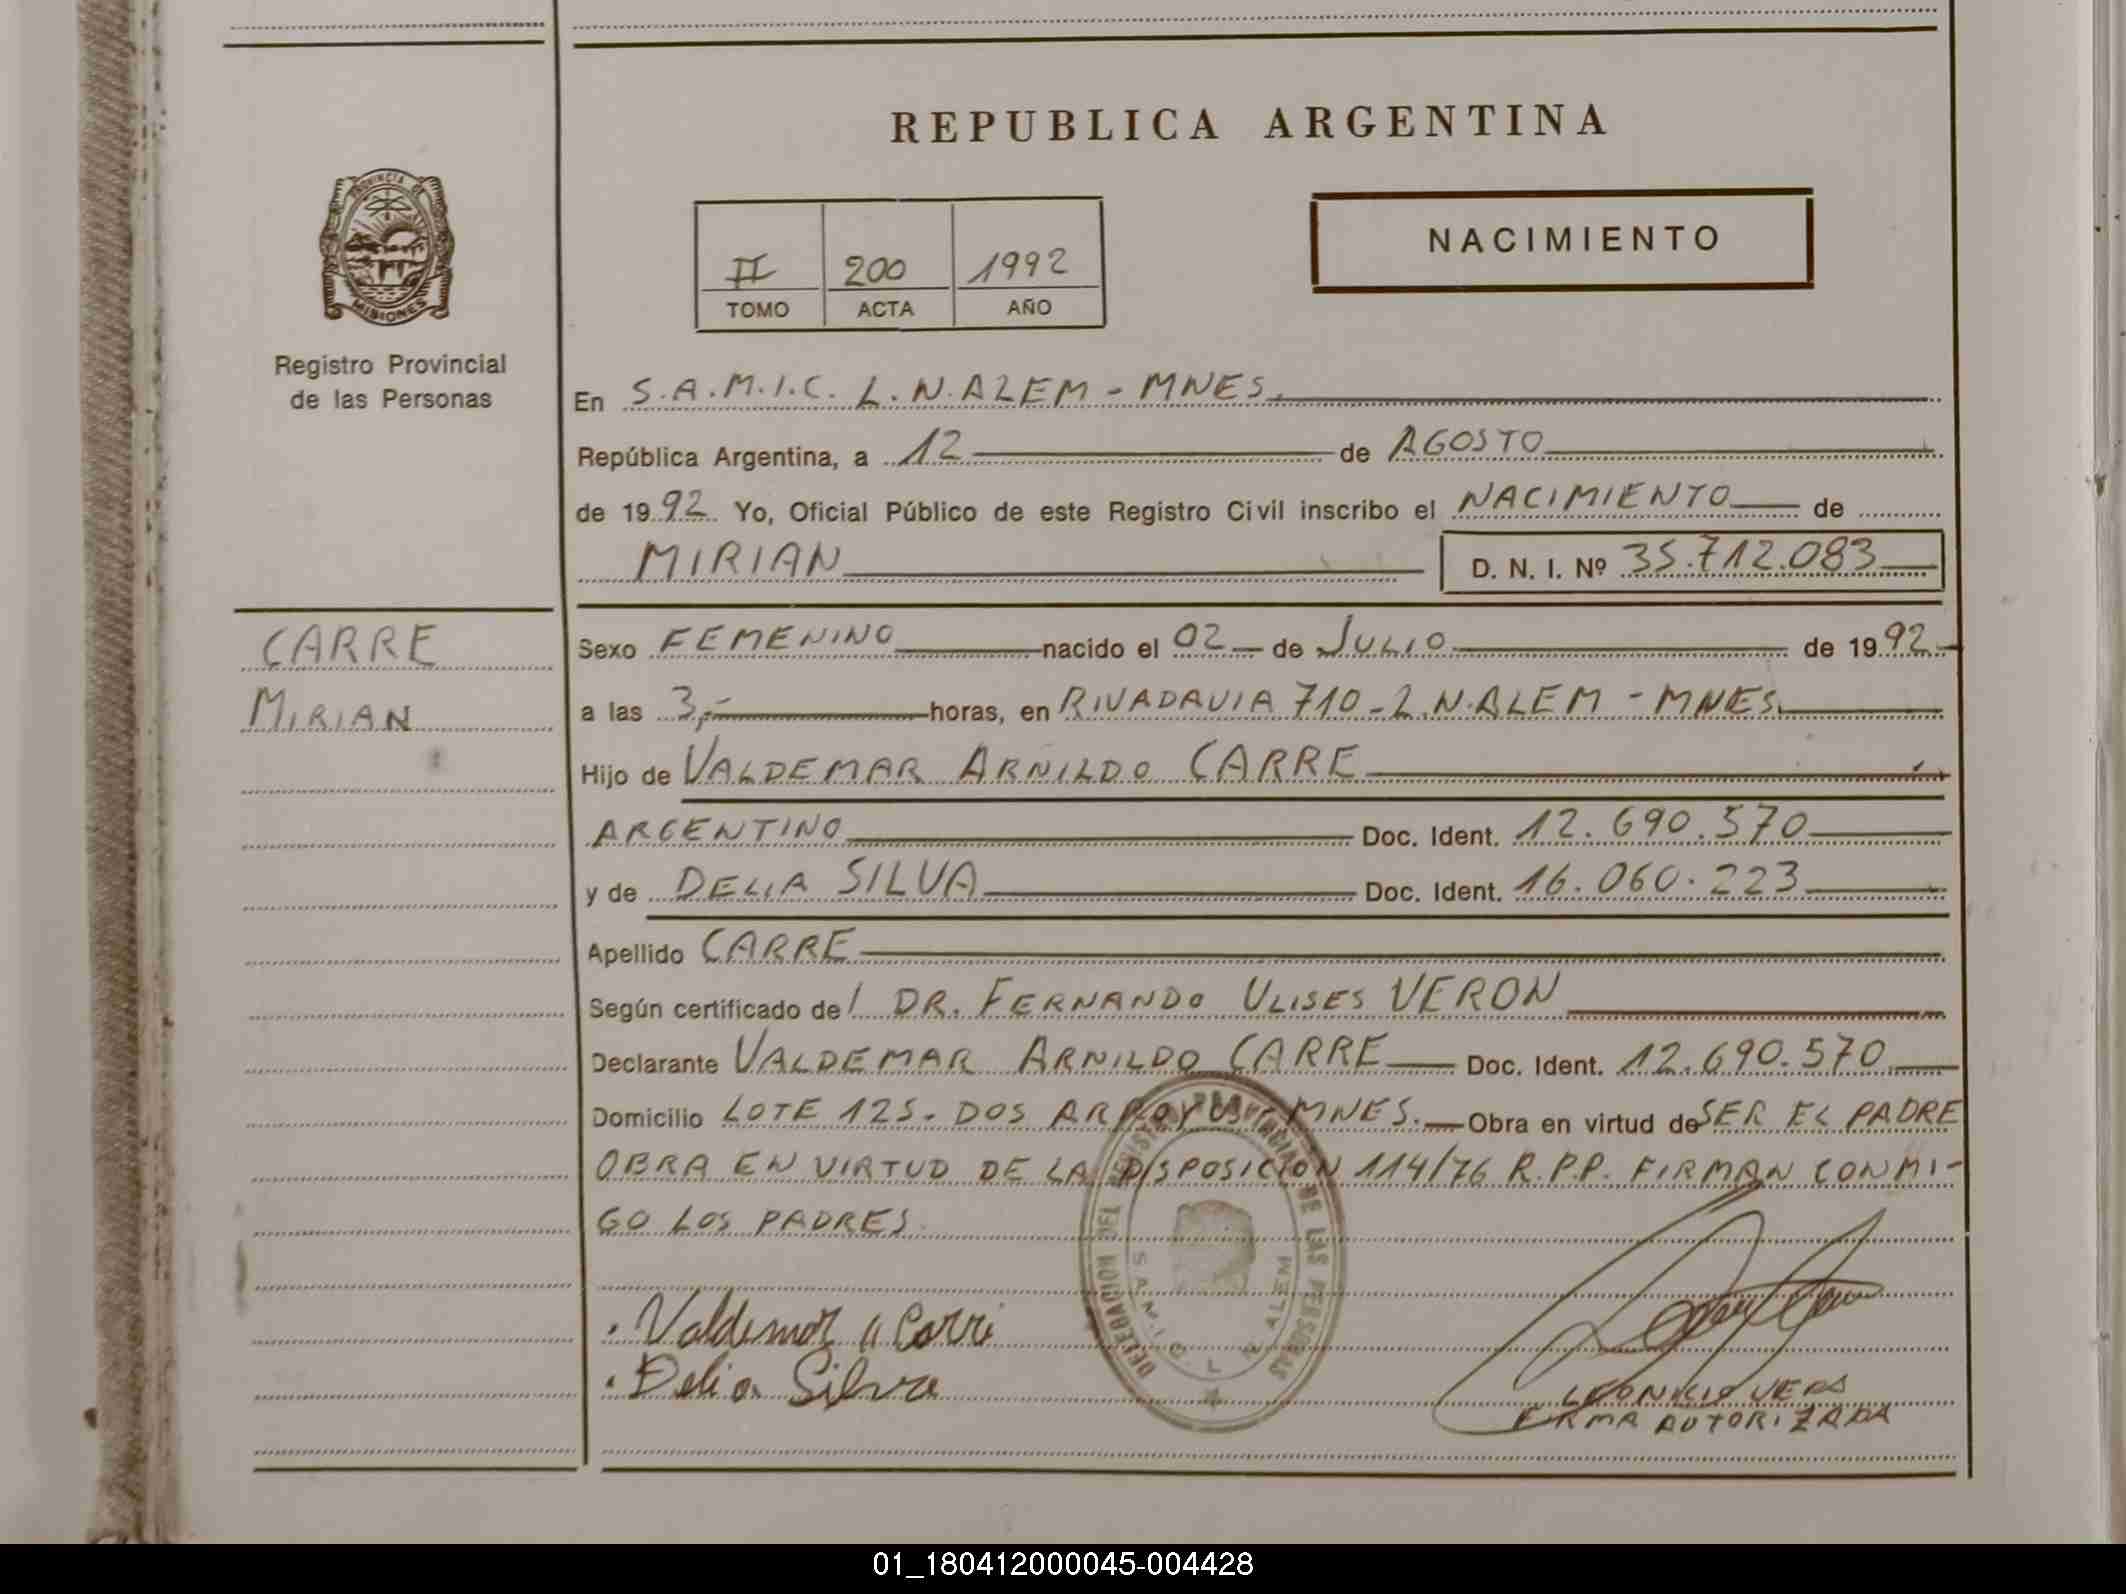 REPUBLICA ARGENTINA
PROVINCIA DE
MISIONES
Registro Provincial
de las Personas
II 200 1992
TOMO ACTA AÑO
NACIMIENTO
En S.A.M.I.C. L.N.ALEM - MNES.
República Argentina, a 12 de AGOSTO
de 1992 Yo, Oficial Público de este Registro Civil inscribo el NACIMIENTO de
MIRIAN D. N. I. Nº 35.712.083
CARRE
MIRIAN
Sexo FEMENINO nacido el 02 de JULIO de 1992
a las 3,- horas, en RIVADAVIA 710 - L.N.ALEM - MNES.
Hijo de VALDEMAR ARNILDO CARRE
ARGENTINO Doc. Ident. 12.690.570
y de DELIA SILVA Doc. Ident. 16.060.223
Apellido CARRE
Según certificado de/ DR. FERNANDO ULISES VERON
Declarante VALDEMAR ARNILDO CARRE Doc. Ident. 12.690.570
Domicilio LOTE 125 - DOS ARROYOS - MNES. Obra en virtud de SER EL PADRE
OBRA EN VIRTUD DE LA DISPOSICION 114/76 R.P.P. FIRMAN CONMI-
GO LOS PADRES.
DELEGACION DEL REGISTRO PROVINCIAL DE LAS PERSONAS
S.A.M.I.C. L. N. ALEM
Valdemar A Carre
Delia Silva
FIRMA AUTORIZADA
01_180412000045-004428